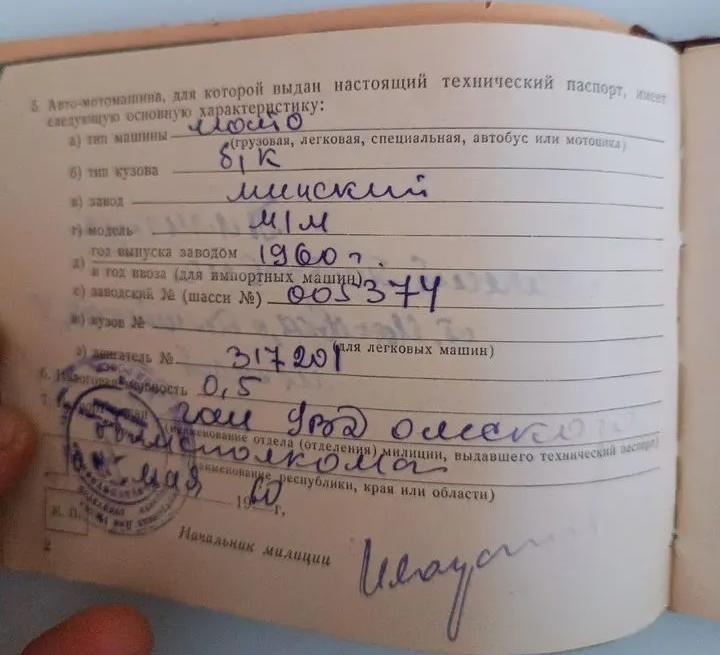 5. Авто-мотомашина, для которой выдан настоящий технический паспорт, имеет
следующую основную характеристику:
а) тип машины мото
(грузовая, легковая, специальная, автобус или мотоцикл)
б) тип кузова б/к
в) завод минский
г) модель М1М
д) год выпуска заводом 1960 г.
и год ввоза (для импортных машин)
е) заводский № (шасси №) 005374
ж) кузов №
(для легковых машин)
з) двигатель № 317201
6. Налоговая мощность 0,5
7. ГАИ УВД омского
(наименование отдела (отделения) милиции, выдавшего технический паспорт)
облисполкома
(наименование республики, края или области)
мая 1960 г.
М. П.
Начальник милиции
2